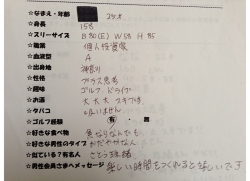 ☆なまえ・年齢 25才
☆身長 158
☆スリーサイズ B 80(E) W 58 H 85
☆職業 個人投資家
☆血液型 A
☆出身地 神奈川
☆性格 プラス思考
☆趣味 ゴルフ、ドライブ
☆お酒 大大大スキです
☆タバコ 吸いません
☆ゴルフ経験 有・
☆好きな食べ物 魚ならなんでも
☆好きな男性のタイプ おだやかな人
☆似ている?有名人
☆男性会員さまへメッセージ 楽しい時間をつくれると嬉しいです